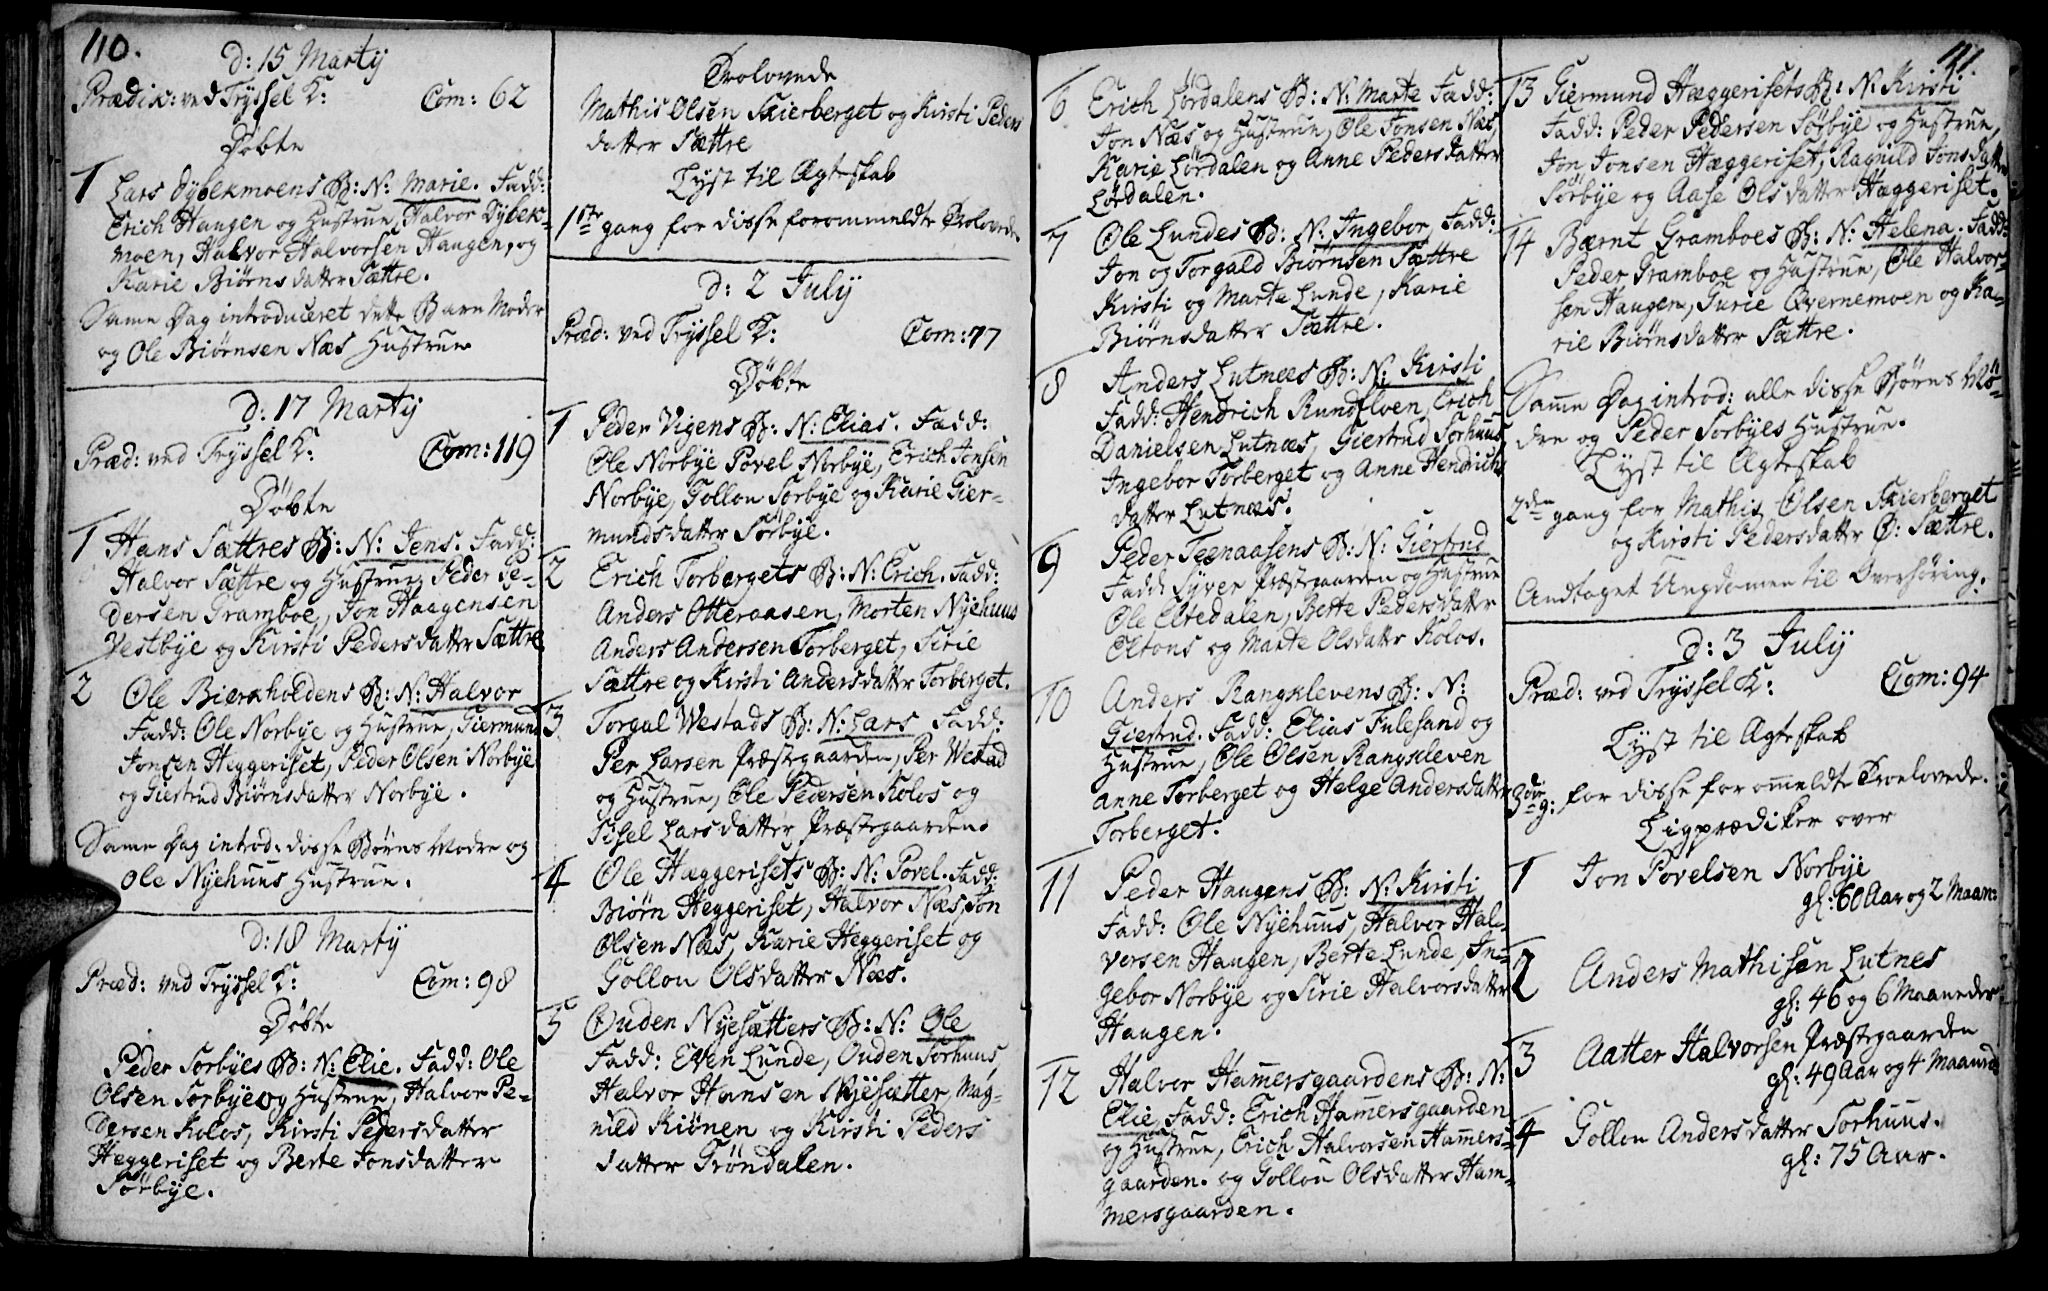 110.
d: 15 Martij
Prædik: ved Tryssel K: Com: 62
Døbte
1 Lars Dybekmoens B: N: Marie. Fadd:
Erich Haugen og Hustrue, Halvor Dybek-
moen, Halvor Halvorsen Haugen, og
Karie Biørnsdatter Sættre.
Same Dag introduceret dette Barn Moder
og Ole Biørnsen Næs Hustrue
d: 17 Martij
Præd: ved Tryssel K: Com: 119
Døbte
1 Hans Sættres B: N: Jens. Fadd:
Halvor Sættre og Hustrue, Peder Pe-
dersen Gramboe, Jon Haagensen
Vestbye og Kirsti Pedersdatter Sættre
2 Ole Bierkholdens B: N: Halvor
Fadd: Ole Norbye og Hustrue, Giermund
Jonsen Heggeriset, Peder Olsen Norbye
og Giertrud Biørnsdatter Norbye.
Same Dag introd: disse Børns Modre og
Ole Nyehuus Hustrue.
d: 18 Martij
Præd: ved Tryssel K: Com: 98
Døbte
Peder Sorbyes B: N: Elie. Fadd: Ole
Olsen Sorbye og Hustrue, Halvor Pe-
dersen Kolos, Kirsti Pedersdatter
Heggeriset og Berte Jonsdatter
Sørbye.
Trolovede
Mathis Olsen Skierberget og Kirsti Peders
datter Sættre
Lyst til Ægteskab
1ste gang for disse forommeldte Trolovede
d: 2 July
Præd: ved Tryssel K: Com: 77
Døbte
1 Peder Vigens B: N: Elias. Fadd:
Ole Norbye Povel Norbye, Erich Jonsen
Norbye, Gollou Sorbye og Karie Gier-
mundsdatter Sørbye.
2 Erich Torbergets B: N: Erich. Fadd:
Anders Otteraasen, Morten Nyehuus
Anders Andersen Torberget, Sirie
Sættre og Kirsti Andersdatter Torberget.
3 Torgal Westads B: N: Lars Fadd:
Per Larsen Præstegaarden, Per Westad
og Hustrue, Ole Pedersen Kolos og
Sisel Larsdatter Præstegaarden
4 Ole Hæggerisets B: N: Povel. Fadd:
Biørn Heggeriset, Halvor Næs, Jon
Olsen Næs, Karie Heggeriset og
Gollou Olsdatter Næs.
5 Ouden Nyesætters B: N: Ole
Fadd: Even Lunde, Ouden Sorhuus,
Halvor Hansen Nyesætter, Mag-
nild Kiønen og Kirsti Peders
datter Grøndalen.
111.
6 Erich Lørdalens B: N: Marte Fadd:
Jon Næs og Hustrue, Ole Jonsen Næs,
Karie Lørdalen og Anne Pedersdatter
Lørdalen.
7 Ole Lundes B: N: Ingebor, Fadd:
Jon og Torgald Biørnsen Sættre
Kirsti og Marte Lunde, Karie
Biørnsdatter Sættre.
8 Anders Lutnæs B: N: Kirsti
Fadd: Hendrich Rundfloen, Erich
Danielsen Lutnæs, Giertrud Sorhuus,
Ingebor Torberget og Anne Hendrichs
datter Lutnæs.
9 Peder Teenaasens B: N: Giertrud
Fadd: Syver Præstgaarden og Hustrue
Ole Eltedalen, Berte Pedersdatter
Eltons og Marte Olsdatter Kolos.
10 Anders Rangklevens B: N:
Giertrud. Fadd: Elias Fulesand og
Hustrue, Ole Olsen Rangkleven
Anne Torberget og Helge Andersdatter
Torberget.
11 Peder Haugens B: N: Kirsti
Fadd: Ole Nyehuus, Halvor Hal-
vorsen Haugen, Berte Lunde, In-
gebor Norbye og Sirie Halvorsdatter
Haugen.
12 Halvor Hamersgaardens B: N:
Elie, Fadd: Erich Hamersgaarden
og Hustrue, Erich Halvorsen Hamers-
gaarden. og Gollou Olsdatter Ham-
mersgaarden.
13 Giermund Hæggerisets B: N: Kirsti
Fadd: Peder Pedersen Sørbye og Hustrue,
Jon Jonsen Hæggeriset, Ragnild Jonsdatter
Sørbye og Aase Olsdatter Hæggeriset.
14 Bærnt Gramboes B: N: Helena. Fadd:
Peder Gramboe og Hustrue, Ole Halvor-
sen Haugen, Gurie Qvernemoen og Ka-
rie Biørnsdatter Sættre.
Same Dag introd: alle disse Børns Mø-
dre og Peder Sorbyes Hustrue.
Lyst til Ægteskab
2den gang for Mathis Olsen Skierberget
og Kirsti Pedersdatter Ø: Sættre.
Andtaget Ungdomen til Overhøring.
d: 3 July
Præd: ved Tryssel K: Com: 94
Lyst til Ægteskab
3die g: for disse forommeldte Troelovede.
Ligprædiker over
1 Jon Povelsen Norbye
gl: 60 Aar og 2 Maan:
2 Anders Mathisen Lutnes
gl: 46 og 6 Maaneder
3 Aatter Halvorsen Præstegaarden
gl: 49 Aar og 4 Maaned
4 Gollou Andersdatter Sorhuus.
gl: 75 Aar.